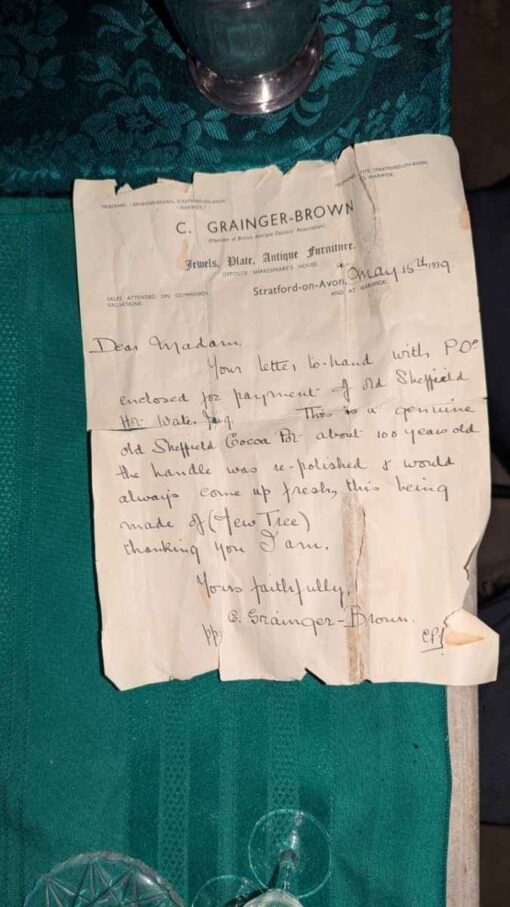 TELEGRAMS: GRAINGER-BROWN, STRATFORD-ON-AVON.
WARWICK.
STRATFORD-ON-AVON.
WARWICK.
C. GRAINGER-BROWN
(Member of British Antique Dealers' Association)
Jewels, Plate, Antique Furniture.
OPPOSITE SHAKESPEARE'S HOUSE,
Stratford-on-Avon,
AND AT WARWICK.
May 15th 1939.
SALES ATTENDED ON COMMISSION.
VALUATIONS.
Dear Madam,
Your letter to-hand with P.O.
enclosed for payment of old Sheffield
Hot Water Jug. This is a genuine
old Sheffield Cocoa Pot about 100 years old
the handle was re-polished & would
always come up fresh, this being
made of (Yew Tree)
thanking you I am,
Yours faithfully,
C. Grainger-Brown.
pp.